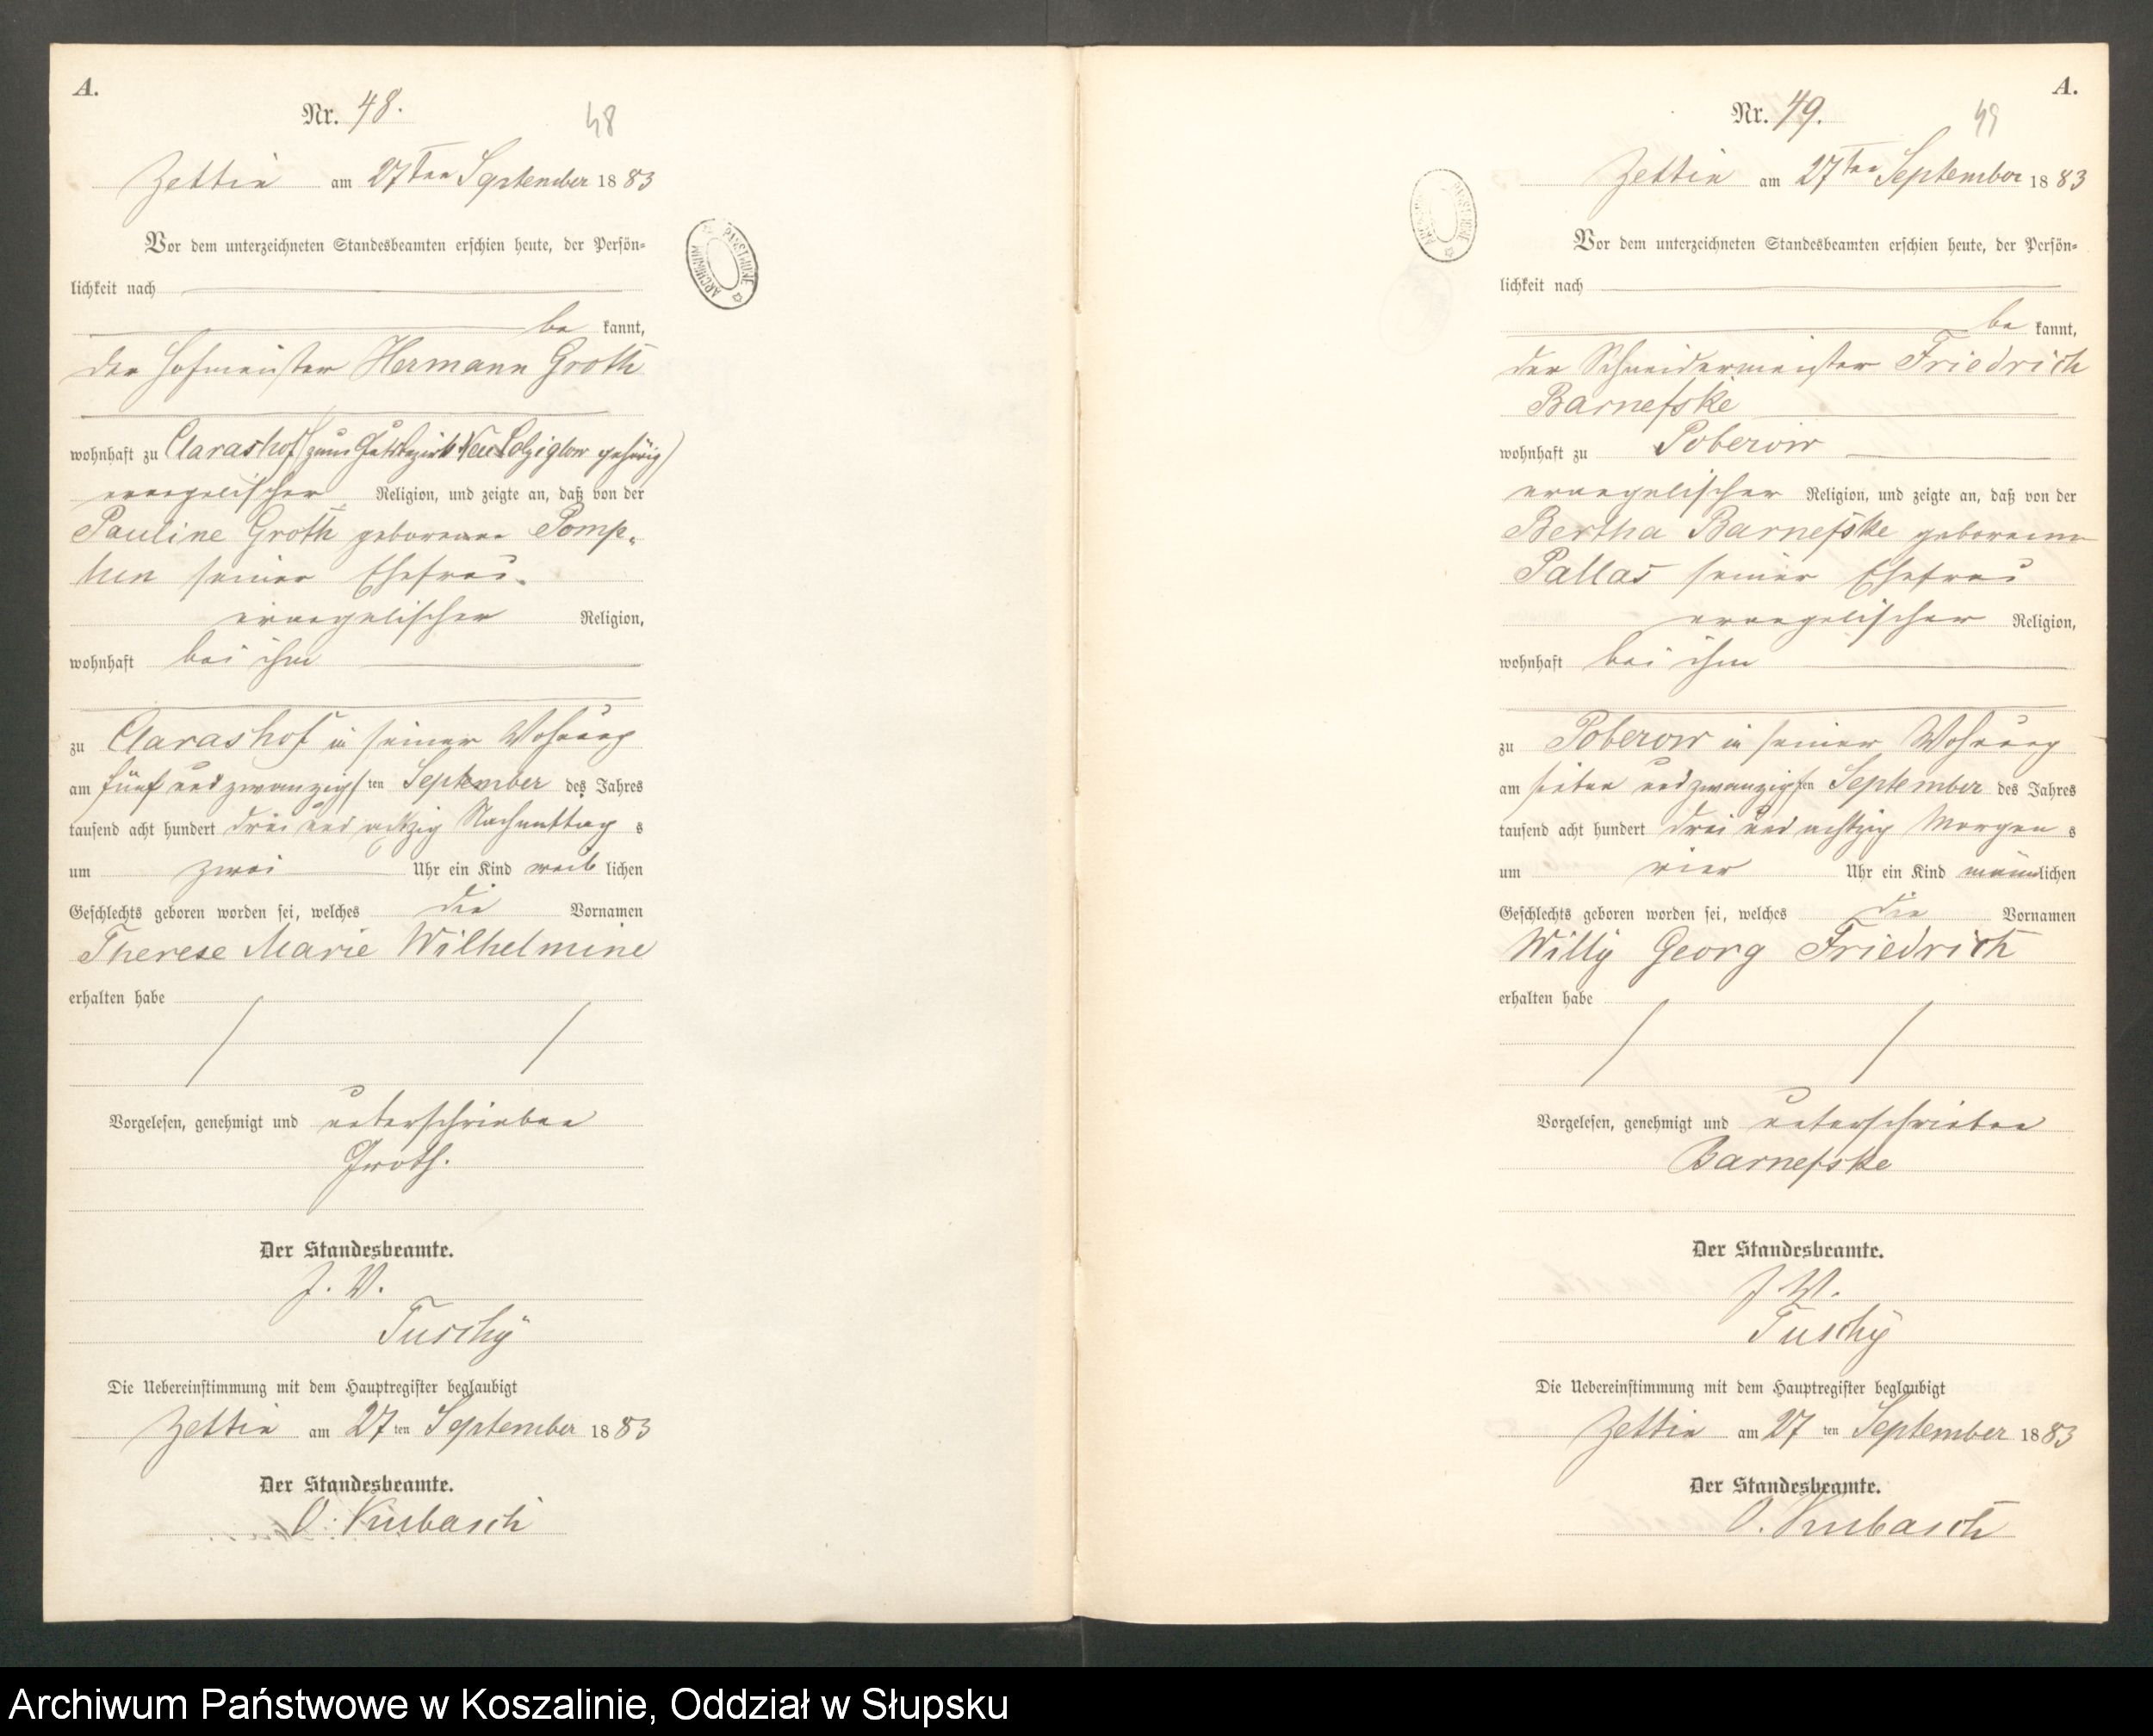 A.
Nr. 48.
48
Zettin am 27ten September 1883
Vor dem unterzeichneten Standesbeamten erschien heute, der Persön-
lichkeit nach
be kannt,
der Hofmeister Hermann Groth
wohnhaft zu Clarashof (zum Gutsbezirk Neu Kolziglow gehörig)
evangelischer Religion, und zeigte an, daß von der
Pauline Groth geborenen Pomp-
lun seiner Ehefrau
evangelischer Religion,
wohnhaft bei ihm
zu Clarashof in seiner Wohnung
am fünf und zwanzigsten September des Jahres
tausend acht hundert drei und achtzig Nachmittag s
um zwei Uhr ein Kind weib lichen
Geschlechts geboren worden sei, welches die Vornamen
Therese Marie Wilhelmine
erhalten habe
Vorgelesen, genehmigt und unterschrieben
Groth.
Der Standesbeamte.
J. V.
Tuschy
Die Uebereinstimmung mit dem Hauptregister beglaubigt
Zettin am 27 ten September 1883
Der Standesbeamte.
O. Kubasch
ARCHIWUM PAŃSTWOWE
A.
Nr. 49.
49
Zettin am 27ten September 1883
Vor dem unterzeichneten Standesbeamten erschien heute, der Persön-
lichkeit nach
be kannt,
der Schneidermeister Friedrich
Barnefske
wohnhaft zu Poberow
evangelischer Religion, und zeigte an, daß von der
Bertha Barnefske geborenen
Pallas seiner Ehefrau
evangelischer Religion,
wohnhaft bei ihm
zu Poberow in seiner Wohnung
am sieben und zwanzigsten September des Jahres
tausend acht hundert drei und achtzig Morgen s
um vier Uhr ein Kind männlichen
Geschlechts geboren worden sei, welches die Vornamen
Willy Georg Friedrich
erhalten habe
Vorgelesen, genehmigt und unterschrieben
Barnefske
Der Standesbeamte.
J. V.
Tuschy
Die Uebereinstimmung mit dem Hauptregister beglaubigt
Zettin am 27 ten September 1883
Der Standesbeamte.
O. Kubasch
Archiwum Państwowe w Koszalinie, Oddział w Słupsku